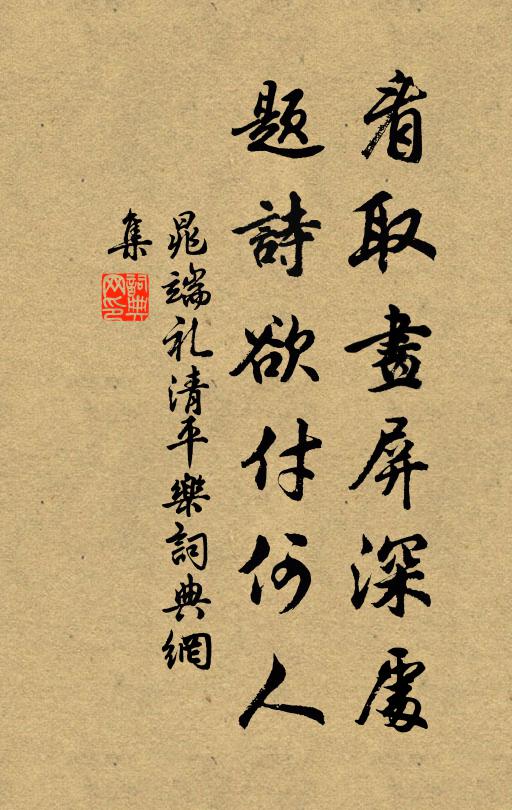 看取畫屏深處
題詩欲付何人
晁端礼清平樂詞典網
集
詞典网印